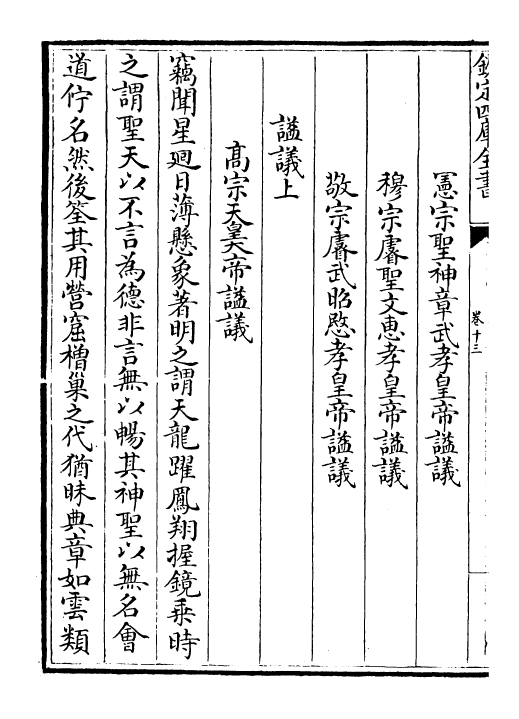 欽定四庫全書
卷十三
憲宗聖神章武孝皇帝諡議
穆宗睿聖文惠孝皇帝諡議
敬宗睿武昭愍孝皇帝諡議
諡議上
髙宗天皇大帝諡議
竊聞星廻日薄懸象著明之謂天龍躍鳳翔握鏡乗時
之謂聖天以不言為德非言無以暢其神聖以無名㑹
道佇名然後筌其用營窟橧巢之代猶昧典章如雲類